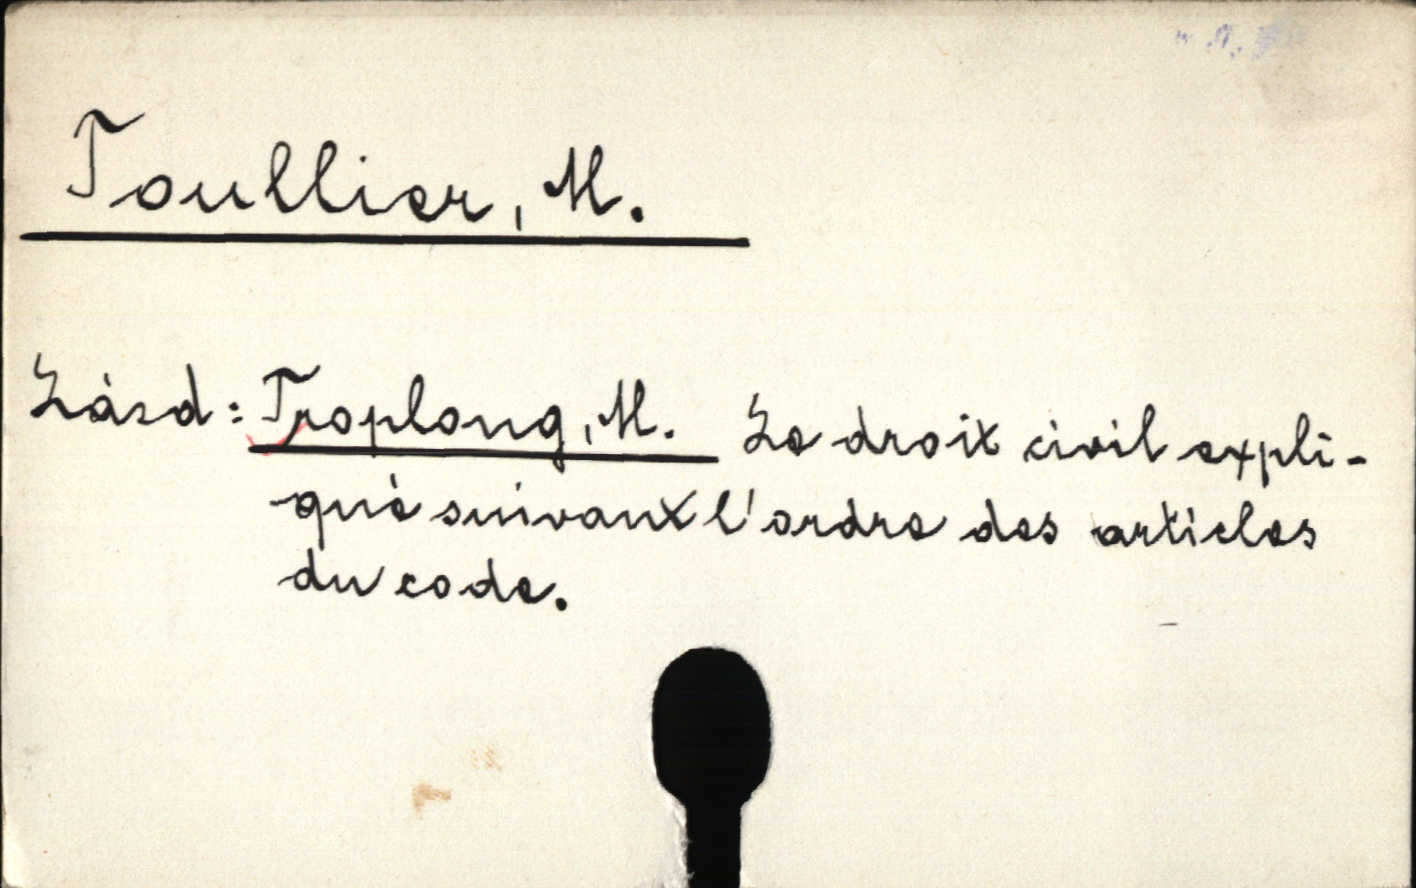 Toullier, M.
Lásd: Troplong, M. Le droit civil expli-
qué suivant l'ordre des articles
du code.